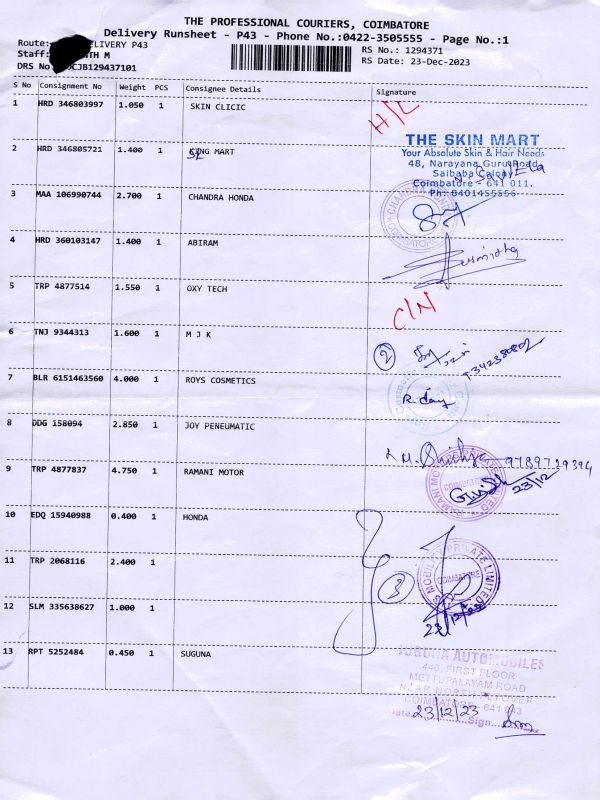 THE PROFESSIONAL COURIERS, COIMBATORE
Delivery Runsheet - P43 - Phone No.:0422-3505555 - Page No.:1
Route: DELIVERY P43 RS No.: 1294371
Staff: TH M RS Date: 23-Dec-2023
DRS No. CJB129437101
S No Consignment No Weight PCS Consignee Details Signature
1 HRD 346803997 1.050 1 SKIN CLICIC H/L
THE SKIN MART
2 HRD 346805721 1.400 1 MART Your Absolute Skin & Hair Needs
48, Narayana Gurunadd
Saibaba Colony
Coimbatore - 641 011.
Ph: 8401455556
3 MAA 106990744 2.700 1 CHANDRA HONDA
4 HRD 360103147 1.400 1 ABIRAM
5 TRP 4877514 1.550 1 OXY TECH C/N
6 TNJ 9344313 1.600 1 M J K 2
7 BLR 6151463560 4.000 1 ROYS COSMETICS
8 DDG 158094 2.850 1 JOY PENEUMATIC 9789729394
9 TRP 4877837 4.750 1 RAMANI MOTOR 23/12
COIMBATORE
10 EDQ 15940988 0.400 1 HONDA
11 TRP 2068116 2.400 1 3
MOBILES PRIVATE LIMITED
COIMBATORE
12 SLM 335638627 1.000 1
13 RPT 5252484 0.450 1 SUGUNA
SUGUNA AUTOMOBILES
446, FIRST FLOOR
METTUPALAYAM ROAD
COIMBATORE - 641 043
Date 23/12/23 Sign.